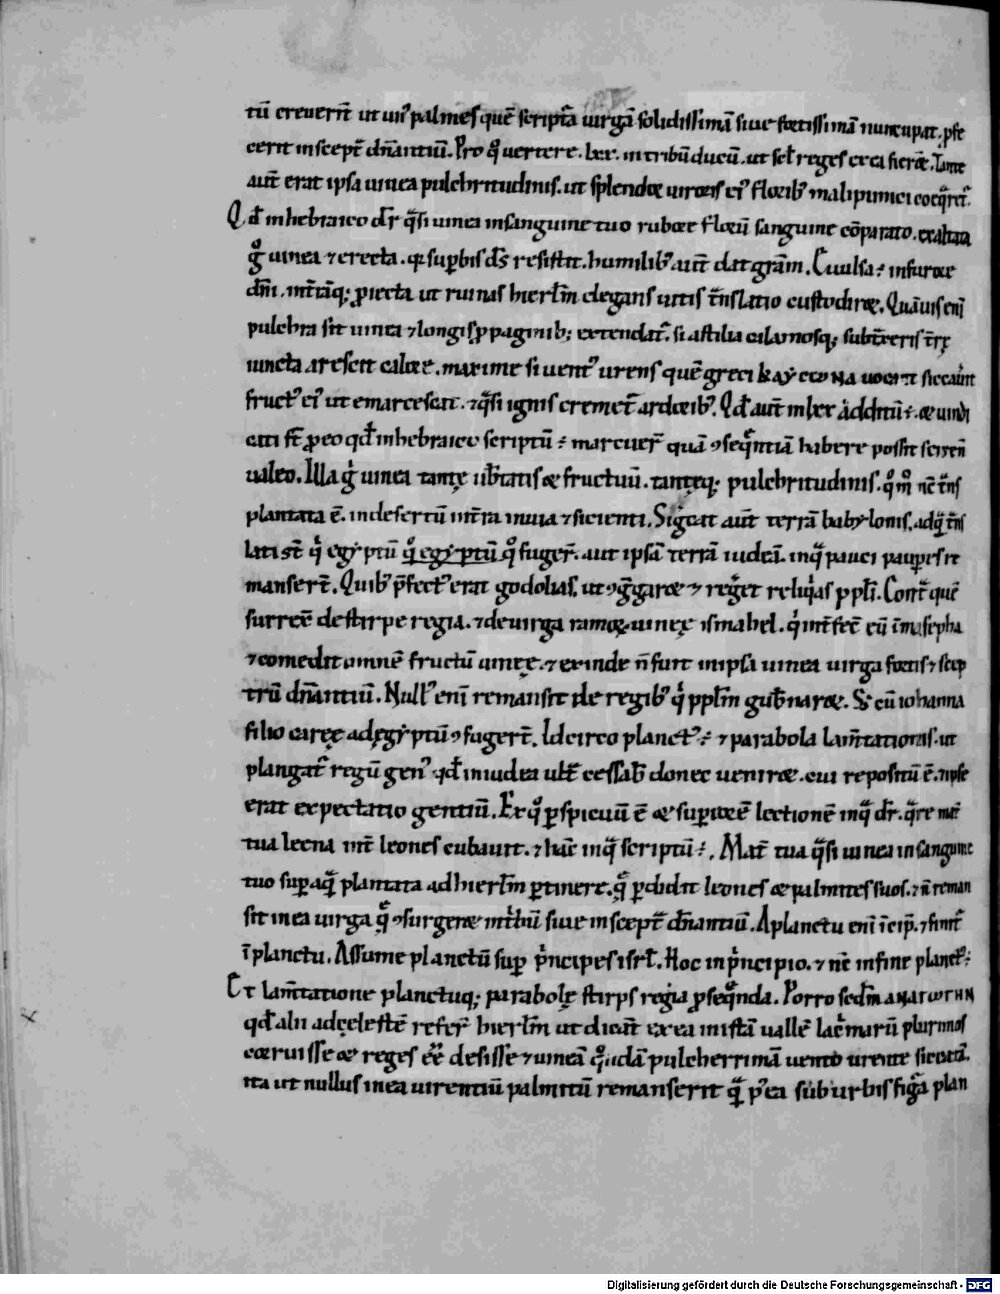 tū creuerīt ut uni' palmes quē scriptā uirgā solidissimā siue fortissimā nuncupat. pfe
cerit in scept̄ dn̄antiū. Pro qͦ uertere. lxx. in tribū ducū. ut scł reges ex ea fierēt. Tante
aut̄ erat ipsa uinea pulchritudinis. ut splendor uuoris ei' florib' mali punici coeq̄ret'.
Qd̄ in hebraico dr̄ q̄si uinea in sanguine tuo rubore florū sanguine cōparato. exaltata
gͦ uinea ⁊ erecta. qꝫ supbis ds̄ resistit. humilib' aut̄ dat grām. Euulsa ÷ in furore
dn̄i. int̄rāq; piecta ut ruinas hierlm̄ elegans uitis t̄nslatio custodiret. Quāuis enī
pulchra sit uinea ⁊ longis ppaginib; extendat'. si astilia calamosq; subt̄reris
iuncta arescit calore. maxime si uent' urens quē greci kaycωna uocant siccauit
fruct' ei' ut emarcescat. ⁊ q̄si ignis cremet̄ ardorib'. Qd̄ aut̄ in lxx additū ÷. et uindi
cati st̄ p eo qd̄ in hebraico scriptū ÷ marcuer̄ quā ꝯseq̄ntiā habere possit scire n̄
ualeo. Illa gͦ uinea tantę ub̄tatis et fructuū. tantęq; pulchritudinis. qm̄ nc̄ t̄ns
plantata ē. in desertū int̄ra inuia ⁊ sicienti. Sig̓cat aut̄ terrā babylonis. ad q̄ t̄ns
lati st̄ q̓ egyptū qͦ egyptū qͦ fuger̄. aut ipsā terrā iudeā. in q̄ pauci paupes re
manser̄t. Quib' p̄fect' erat godolias. ut ꝯg̓garet ⁊ reg̓et reliq̓as ppłi. Contͣ quē
surrexē de stirpe regia. ⁊ de uirga ramoꝝ uineę ismahel. q̓ int̄fec̄ eū ī masepha
⁊ comedit omnē fructū uineę. ⁊ exinde n̄ fuit in ipsa uinea uirga fortis ⁊ scep
trū dn̄antiū. Null' enī remansit de regib' q̓ pplm̄ gub̄naret. S; cū iohanna
filio careę ad egyptū ꝯfuger̄t. Idcirco planct' ÷ ⁊ parabola lam̄tationis. ut
plangat' regū gen' qd̄ in iudea ult̄ cessab̄ donec ueniret. cui repositū ē. ⁊ ipse
erat expectatio gentiū. Ex qͦ pspicuū ē et supiorē lectionē in q̄ dr̄. q̄re mat̄
tua leena int̄ leones cubauit. ⁊ hāc in q̄ scriptū ÷. Mat̄ tua q̄si uinea in sanguine
tuo sup aq̄ plantata ad hierlm̄ ptinere. q̄ pdidit leones et palmites suos. ⁊ n̄ reman
sit in ea uirga q̄ ꝯsurgeret int̓bū siue in scept̄ dn̄antiū. A planctu enī īcip̄. ⁊ finit̄
ī planctu. Assume planctū sup p̓ncipes isrł. Hoc in p̓ncipio. ⁊ nc̄ in fine planct' ÷
Et lam̄tatione planctuq; parabolę stirps regia pseq̄nda. Porro sedm̄ ΑΝΑΓωΓΗΝ
qd̄ alii ad cęlestē refer̄ hierlm̄ ut dicāt ex ea in istā uallē lac̓marū plurimos
corruisse et reges eē desisse ⁊ uineā qͦndā pulcherrimā uento urente siccatā.
ita ut nullus in ea uirentiū palmitū remanserit q̄ p' ea suburbis fig̓a plan
Digitalisierung gefördert durch die Deutsche Forschungsgemeinschaft - DFG